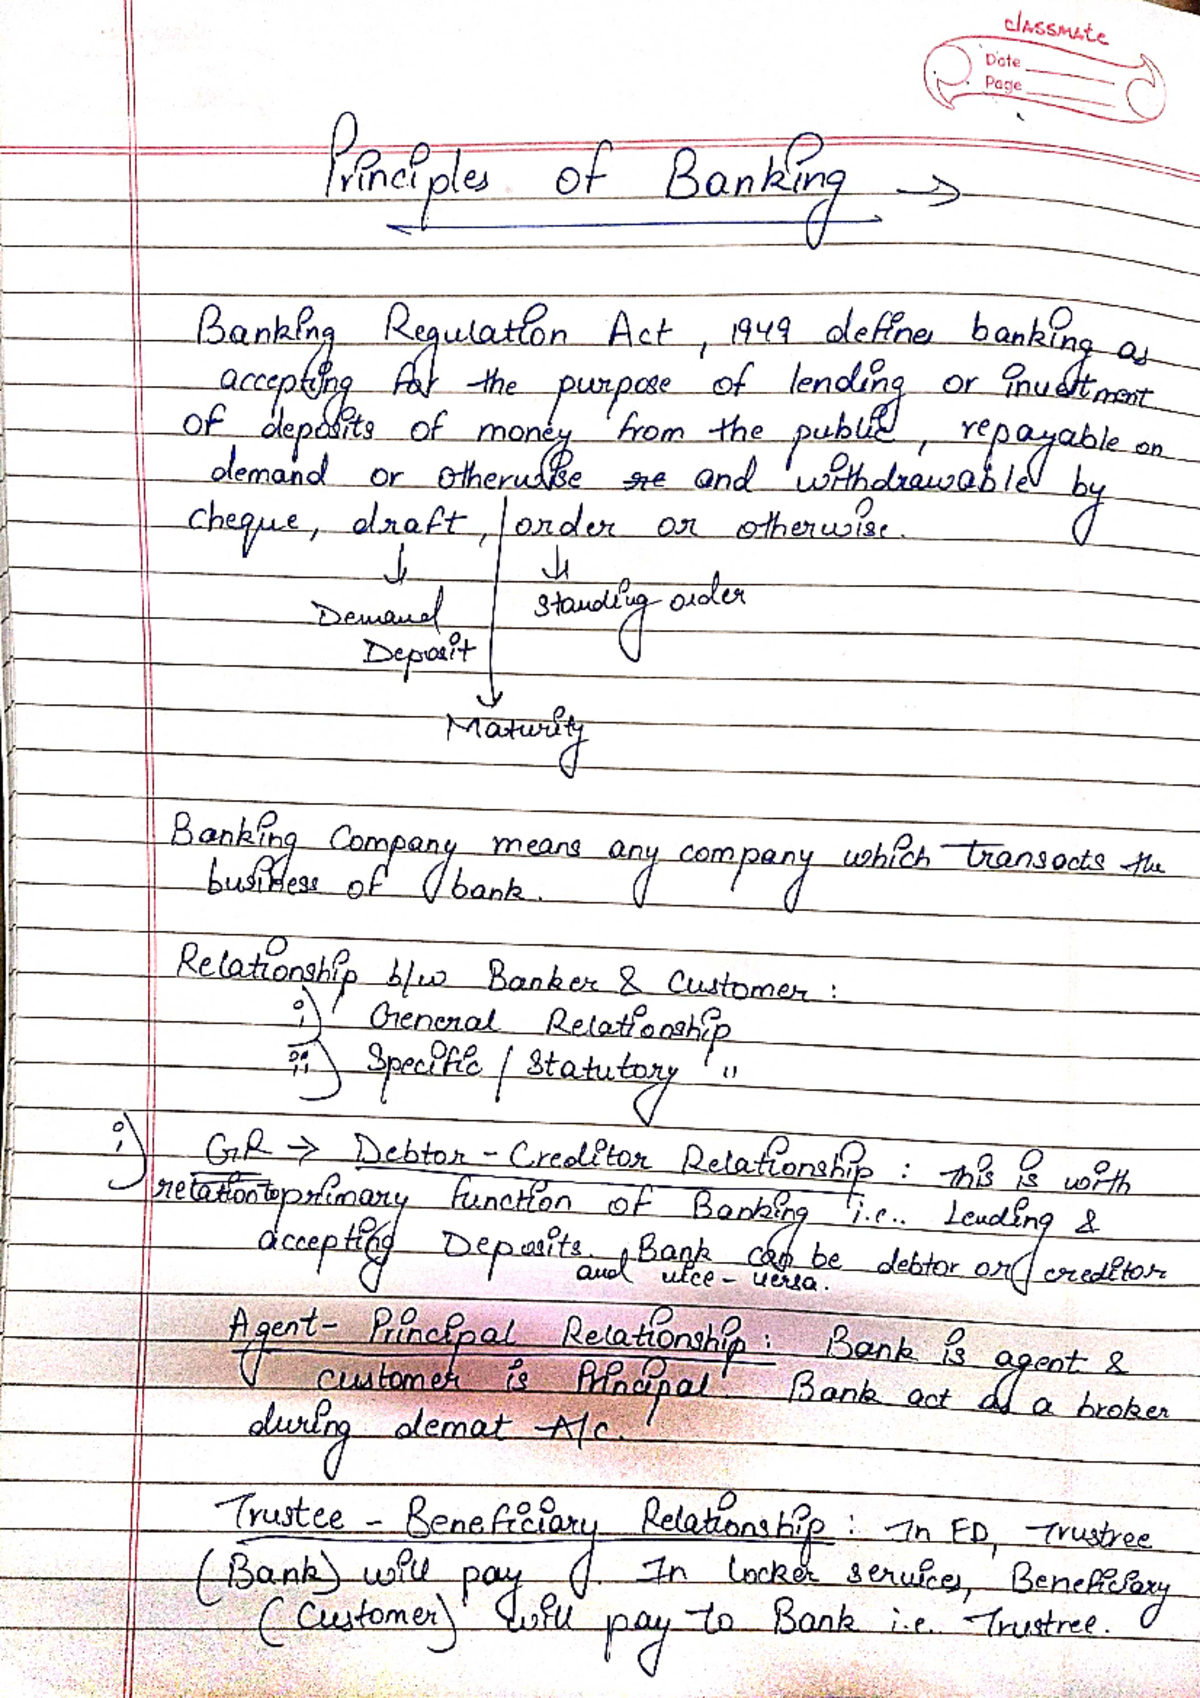 classmate
Date
Page
Principles of Banking →
Banking Regulation Act, 1949 defines banking as
accepting for the purpose of lending or investment
of deposits of money from the public, repayable on
demand or otherwise and withdrawable by
cheque, draft, order or otherwise.
Demand
Deposit
Standing order
Maturity
Banking Company means any company which transacts the
business of bank.
Relationship b/w Banker & Customer :
i) General Relationship
ii) Specific / Statutory "
i) GR → Debtor - Creditor Relationship : this is with
relation to primary function of Banking i.e.. Lending &
accepting Deposits. Bank can be debtor or creditor
and vice - versa.
Agent - Principal Relationship : Bank is agent &
customer is Principal. Bank act as a broker
during demat A/c.
Trustee - Beneficiary Relationship : In FD, Trustree
(Bank) will pay. In locker services, Beneficiary
(Customer) will pay to Bank i.e. Trustree.